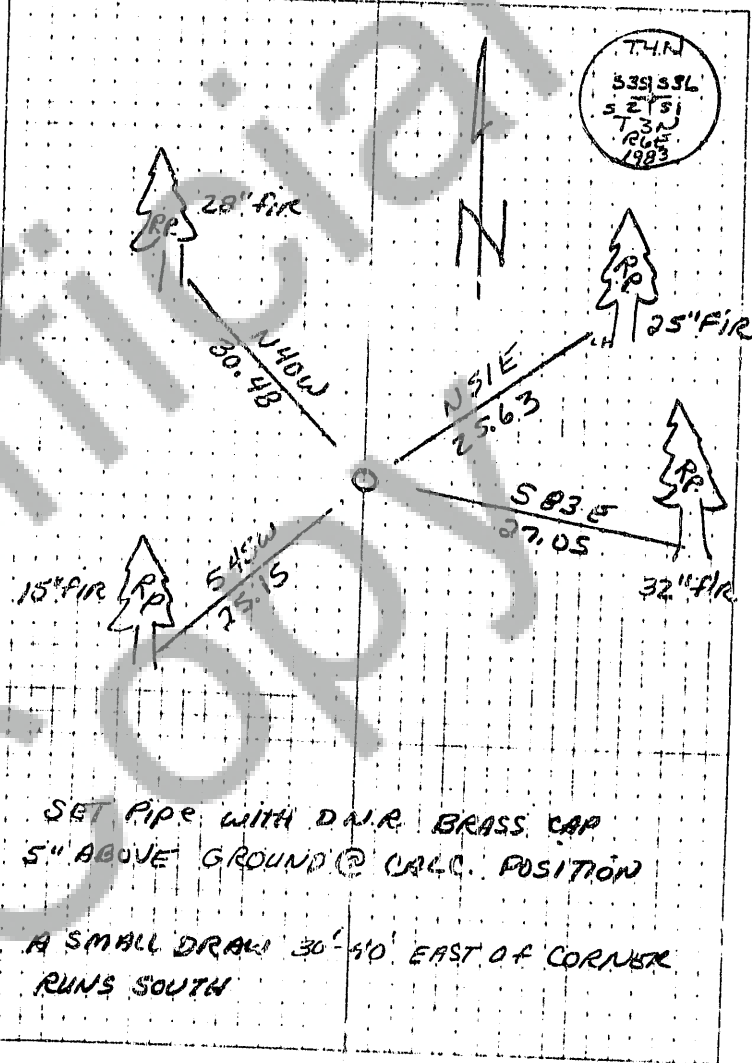 T4N
S35 S36
S2 S1
T3N
R6E
1983
28" fir
RP
N
RP
25" FIR
N40W
30.48
N51E
25.63
RP
S83E
27.05
32" fir
S45W
25.15
15" FIR
RP
SET Pipe WITH D.N.R. BRASS CAP
5" ABOVE GROUND @ CALC. POSITION
A SMALL DRAW 30'-40' EAST OF CORNER
RUNS SOUTH
Unofficial
Copy